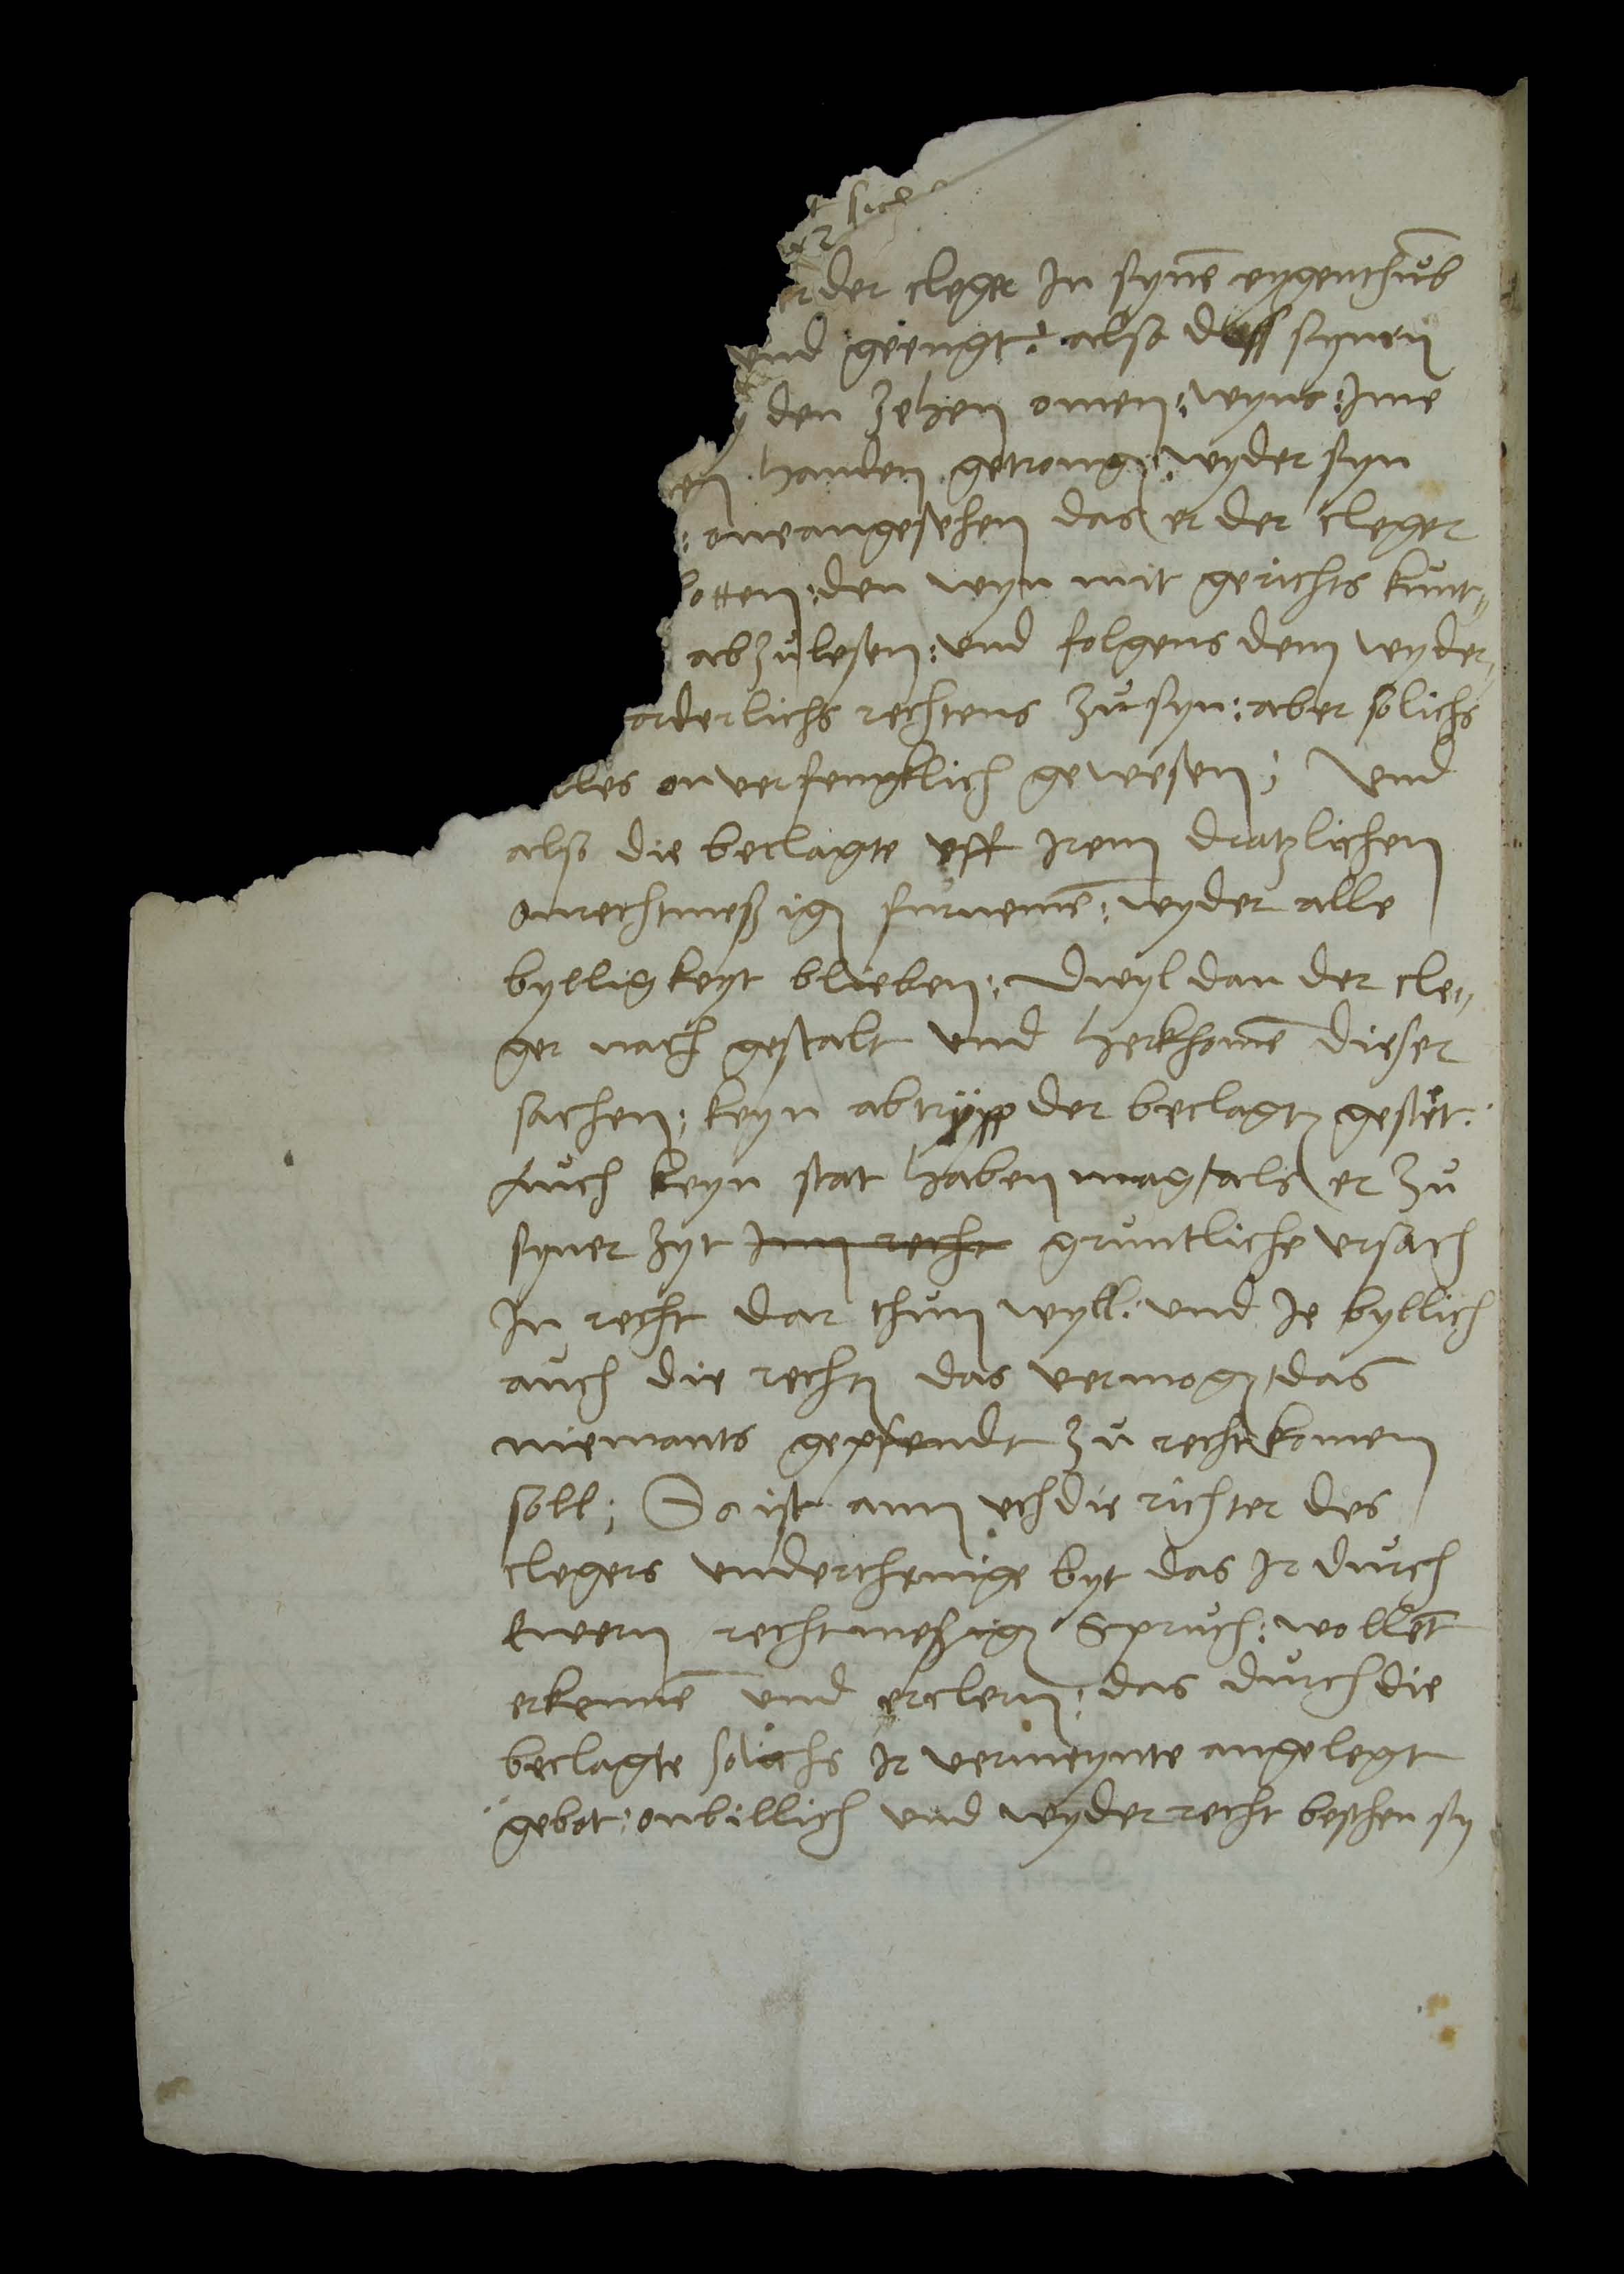 t sich
er der cleger In synē eygenthub
und geengt: also dass synen
den zehen omen: wyns: Ime
en handen getrong: wyder syn
: oneangesehen das er der cleger
botten: den wyn mit gerichts kunt„
abzulesen: und folgens dem wyder„
orderlichs rechtens zu syn: aber solichs
alles onverfengklich gewesen; Und
also die beclagte uff Irem dratzlichen
onrechtmeßig furnemē: wyder alle
bylligkeyt blieben: Dwyl dan der cle„
ger nach gestalt und herkhomē dieser
sachen; keyn abtryß der beclagt gestet:
Auch keyn stat haben mag / als er zu
syner zyt Inn recht gruntliche ursach
In recht dar thun wyll: und Ie byllich
auch die recht das vermog / das
niemants gepfendt zu recht komen
soll; So ist ann uch die richter des
clegers underthenige byt das Ir durch
euern rechtmeßig Spruch: wollēt
erkennē und erclern; das durch die
beclagte solichs Ir vermeynte angelegt
gebot: onbillich und wyder recht beschen sy